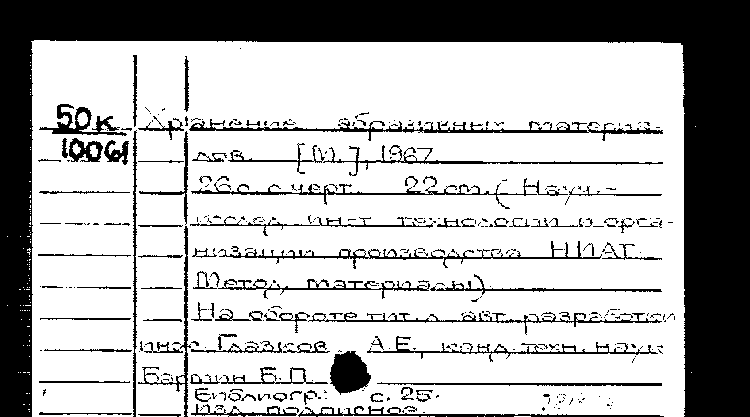 50к Хранение абразивных материа-
10061 лов. [М.], 1967
26 с. с черт. 22 см. (Науч.-
исслед. инст технологии и орга-
низации производства НИАТ.
Метод. материалы)
На обороте тит. л авт. разработки
инж. Глазков А.Е., канд. техн. наук
Б.П.
Библиогр.: с. 25.
Изд. подписное.